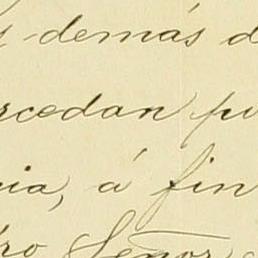 y demás d
rcedan pu
cia, á fin
tro Señor